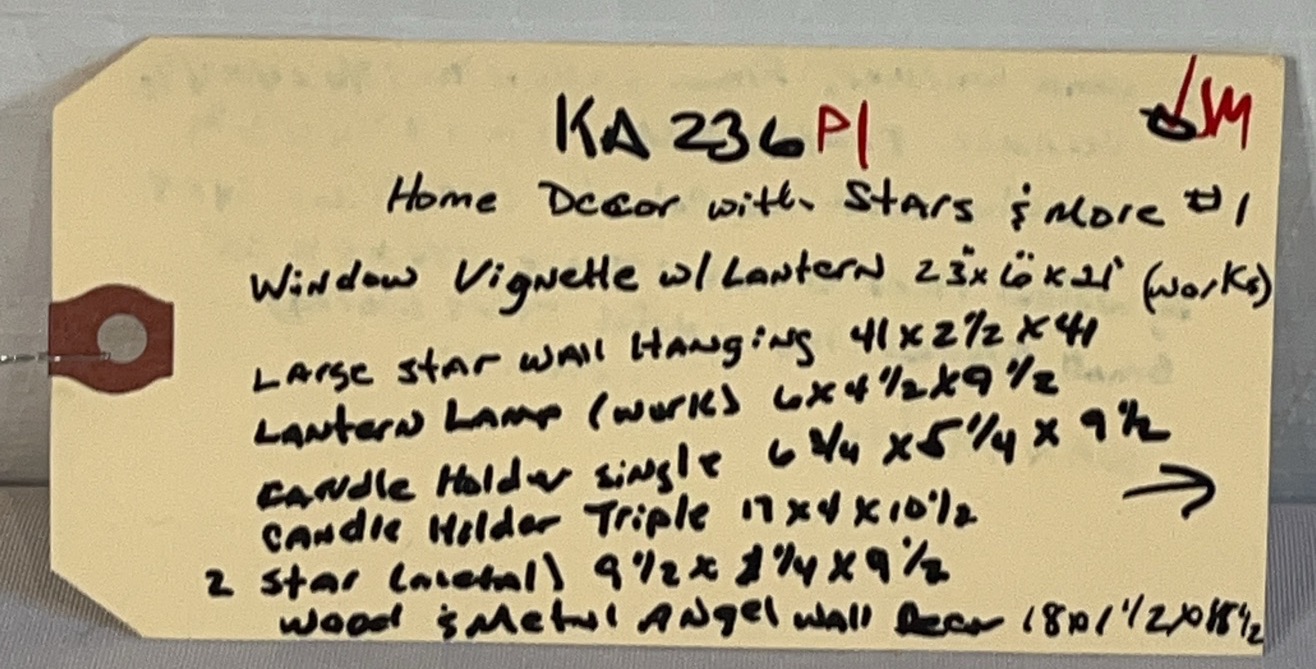 KA 236 P1 JM
Home Decor with Stars & More #1
Window Vignette w/ Lantern 23"x 6" x 21" (works)
Large star wall Hanging 41 x 2 1/2 x 41
Lantern Lamp (works) 6 x 4 1/2 x 9 1/2
Candle Holder single 6 3/4 x 5 1/4 x 9 1/2
Candle Holder Triple 17 x 4 x 10 1/2 →
2 Star (metal) 9 1/2 x 1/4 x 9 1/2
Wood & Metal Angel wall Decor 18 x 1 1/2 x 18 1/2